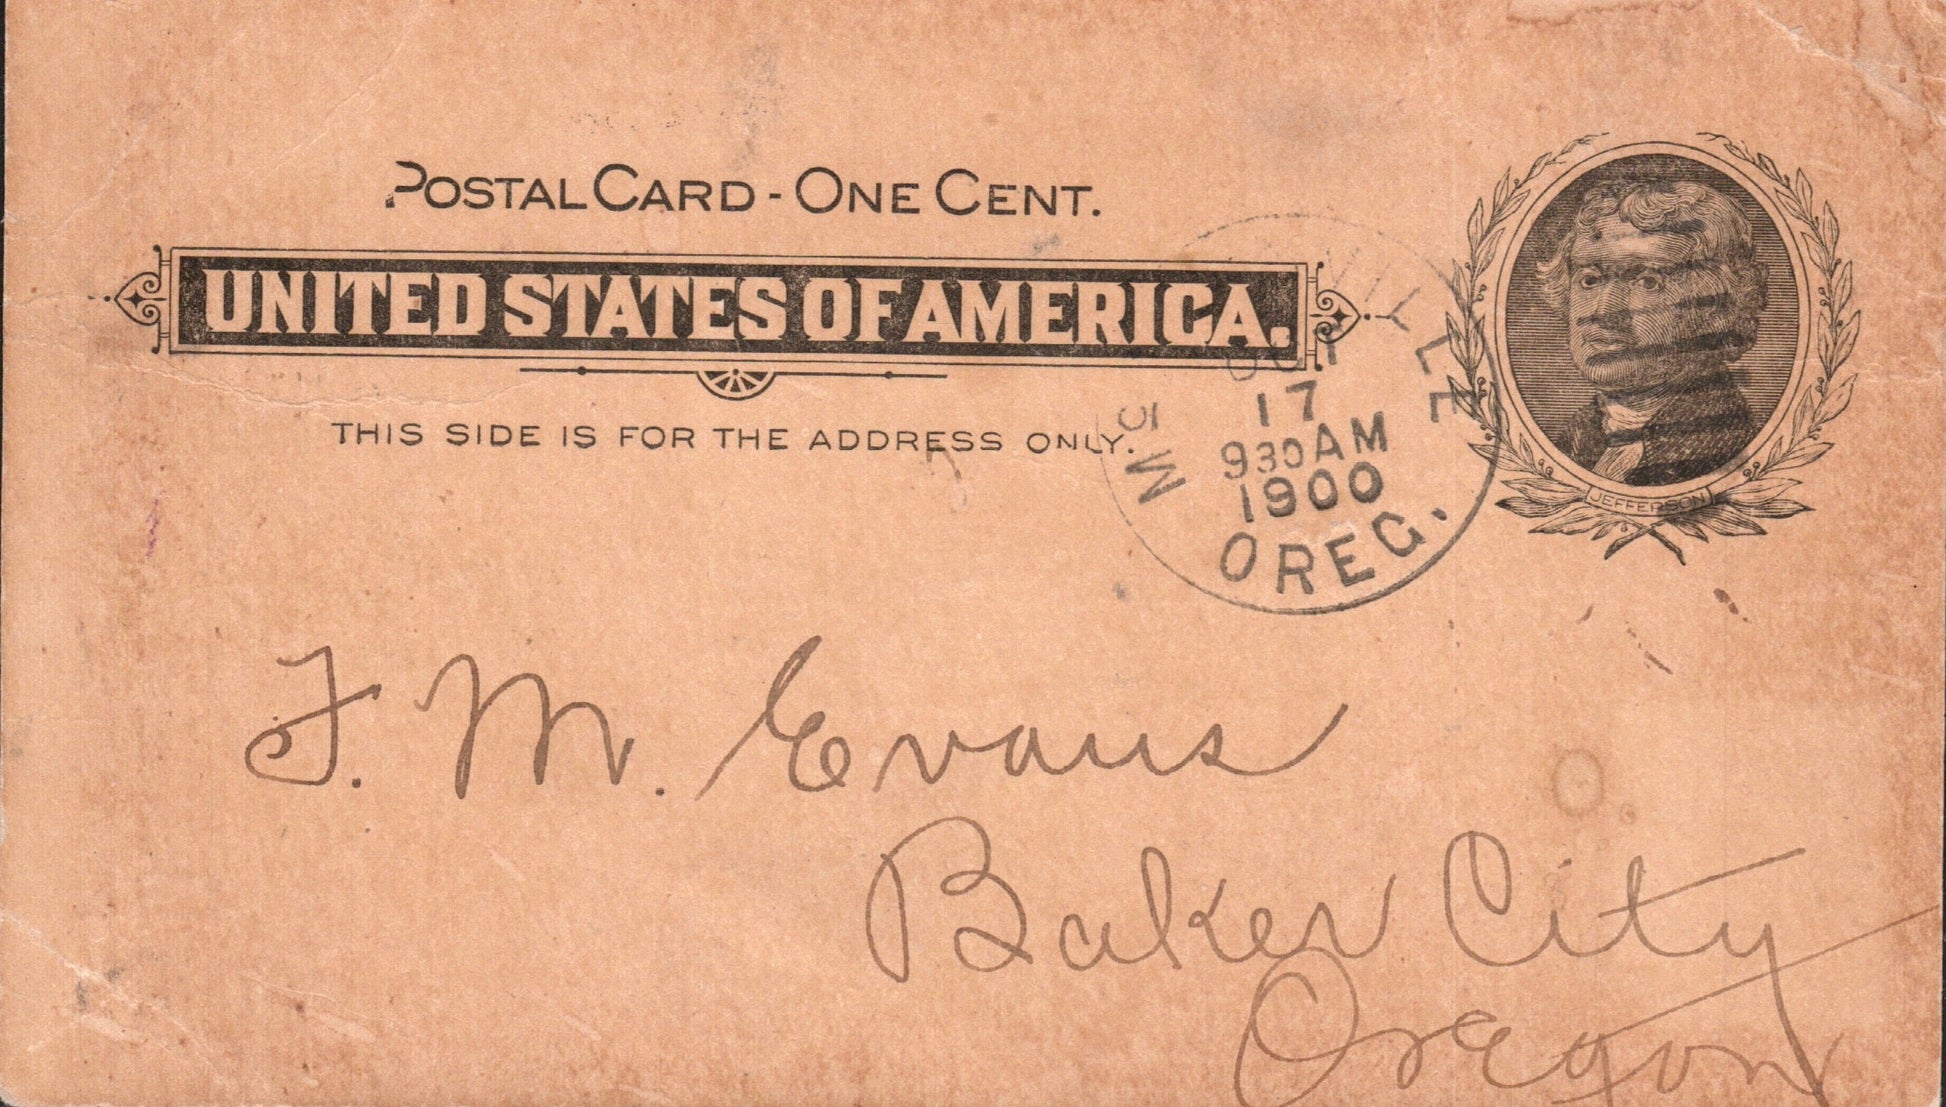 POSTAL CARD - ONE CENT.
UNITED STATES OF AMERICA.
THIS SIDE IS FOR THE ADDRESS ONLY.
17
930AM
1900
OREG.
JEFFERSON
F. M. Evans
Baker City
Oregon